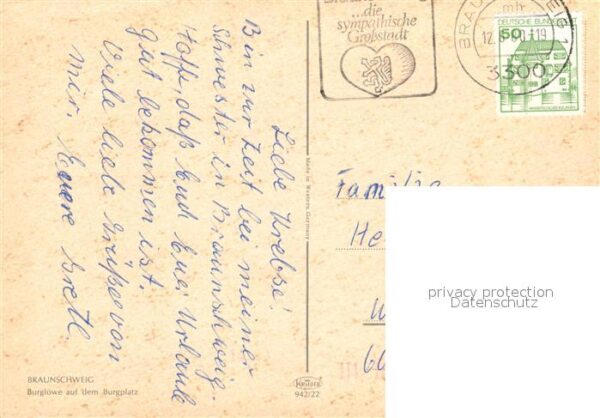 Liebe Krebse!
Bin zur Zeit bei meiner
Schwester in Braunschweig.
Hoffe, daß Euch Euer Urlaub
gut bekommen ist.
Viele liebe Grüße von
mir, Euere Gretl.
BRAUNSCHWEIG
Burglöwe auf dem Burgplatz
Made in Western-Germany
Krüger
942/22
die
sympathische
Großstadt
BRAU
EIG 1
mb
12.
-19
3300
DEUTSCHE BUNDESPOST
50
Familie
He
W
66
privacy protection
Datenschutz